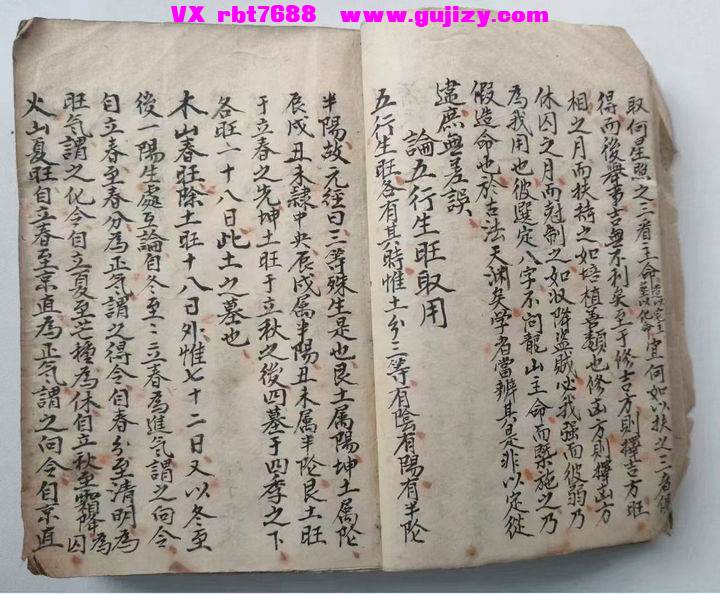 VX rbt7688 www.gujizy.com
取何星照之三看主命宜何如以扶之三者俱
得而後舉事吉無不利矣至于修吉方則擇吉方旺
相之月而扶持之如培植善類也修凶方則擇凶方
休囚之月而尅制之如收降盜賊必我强而彼弱乃
為我用也彼選定八字不问龍山主命而槩施之乃
假造命也於古法天渊矣学者當辨其是非以定從
違庶無差誤
論五行生旺取用
五行生旺各有其時惟土分三等有陰有陽有半陰
半陽故元经曰三等殊生是也艮土属陽坤土属陰
辰戌丑未隸中央辰戌属半陽丑未属半陰艮土旺
于立春之先坤土旺于立秋之後四墓于四季之下
各旺一十八日此土之墓也
木山春旺除土旺十八日外惟七十二日又以冬至
後一陽生處互論自冬至至立春為進气謂之向令
自立春至春分為正气謂之得令自春分至清明為
旺气謂之化令自立夏至芒種為休自立秋至霜降為囚
火山夏旺自立春至京直為正气謂之向令自京直